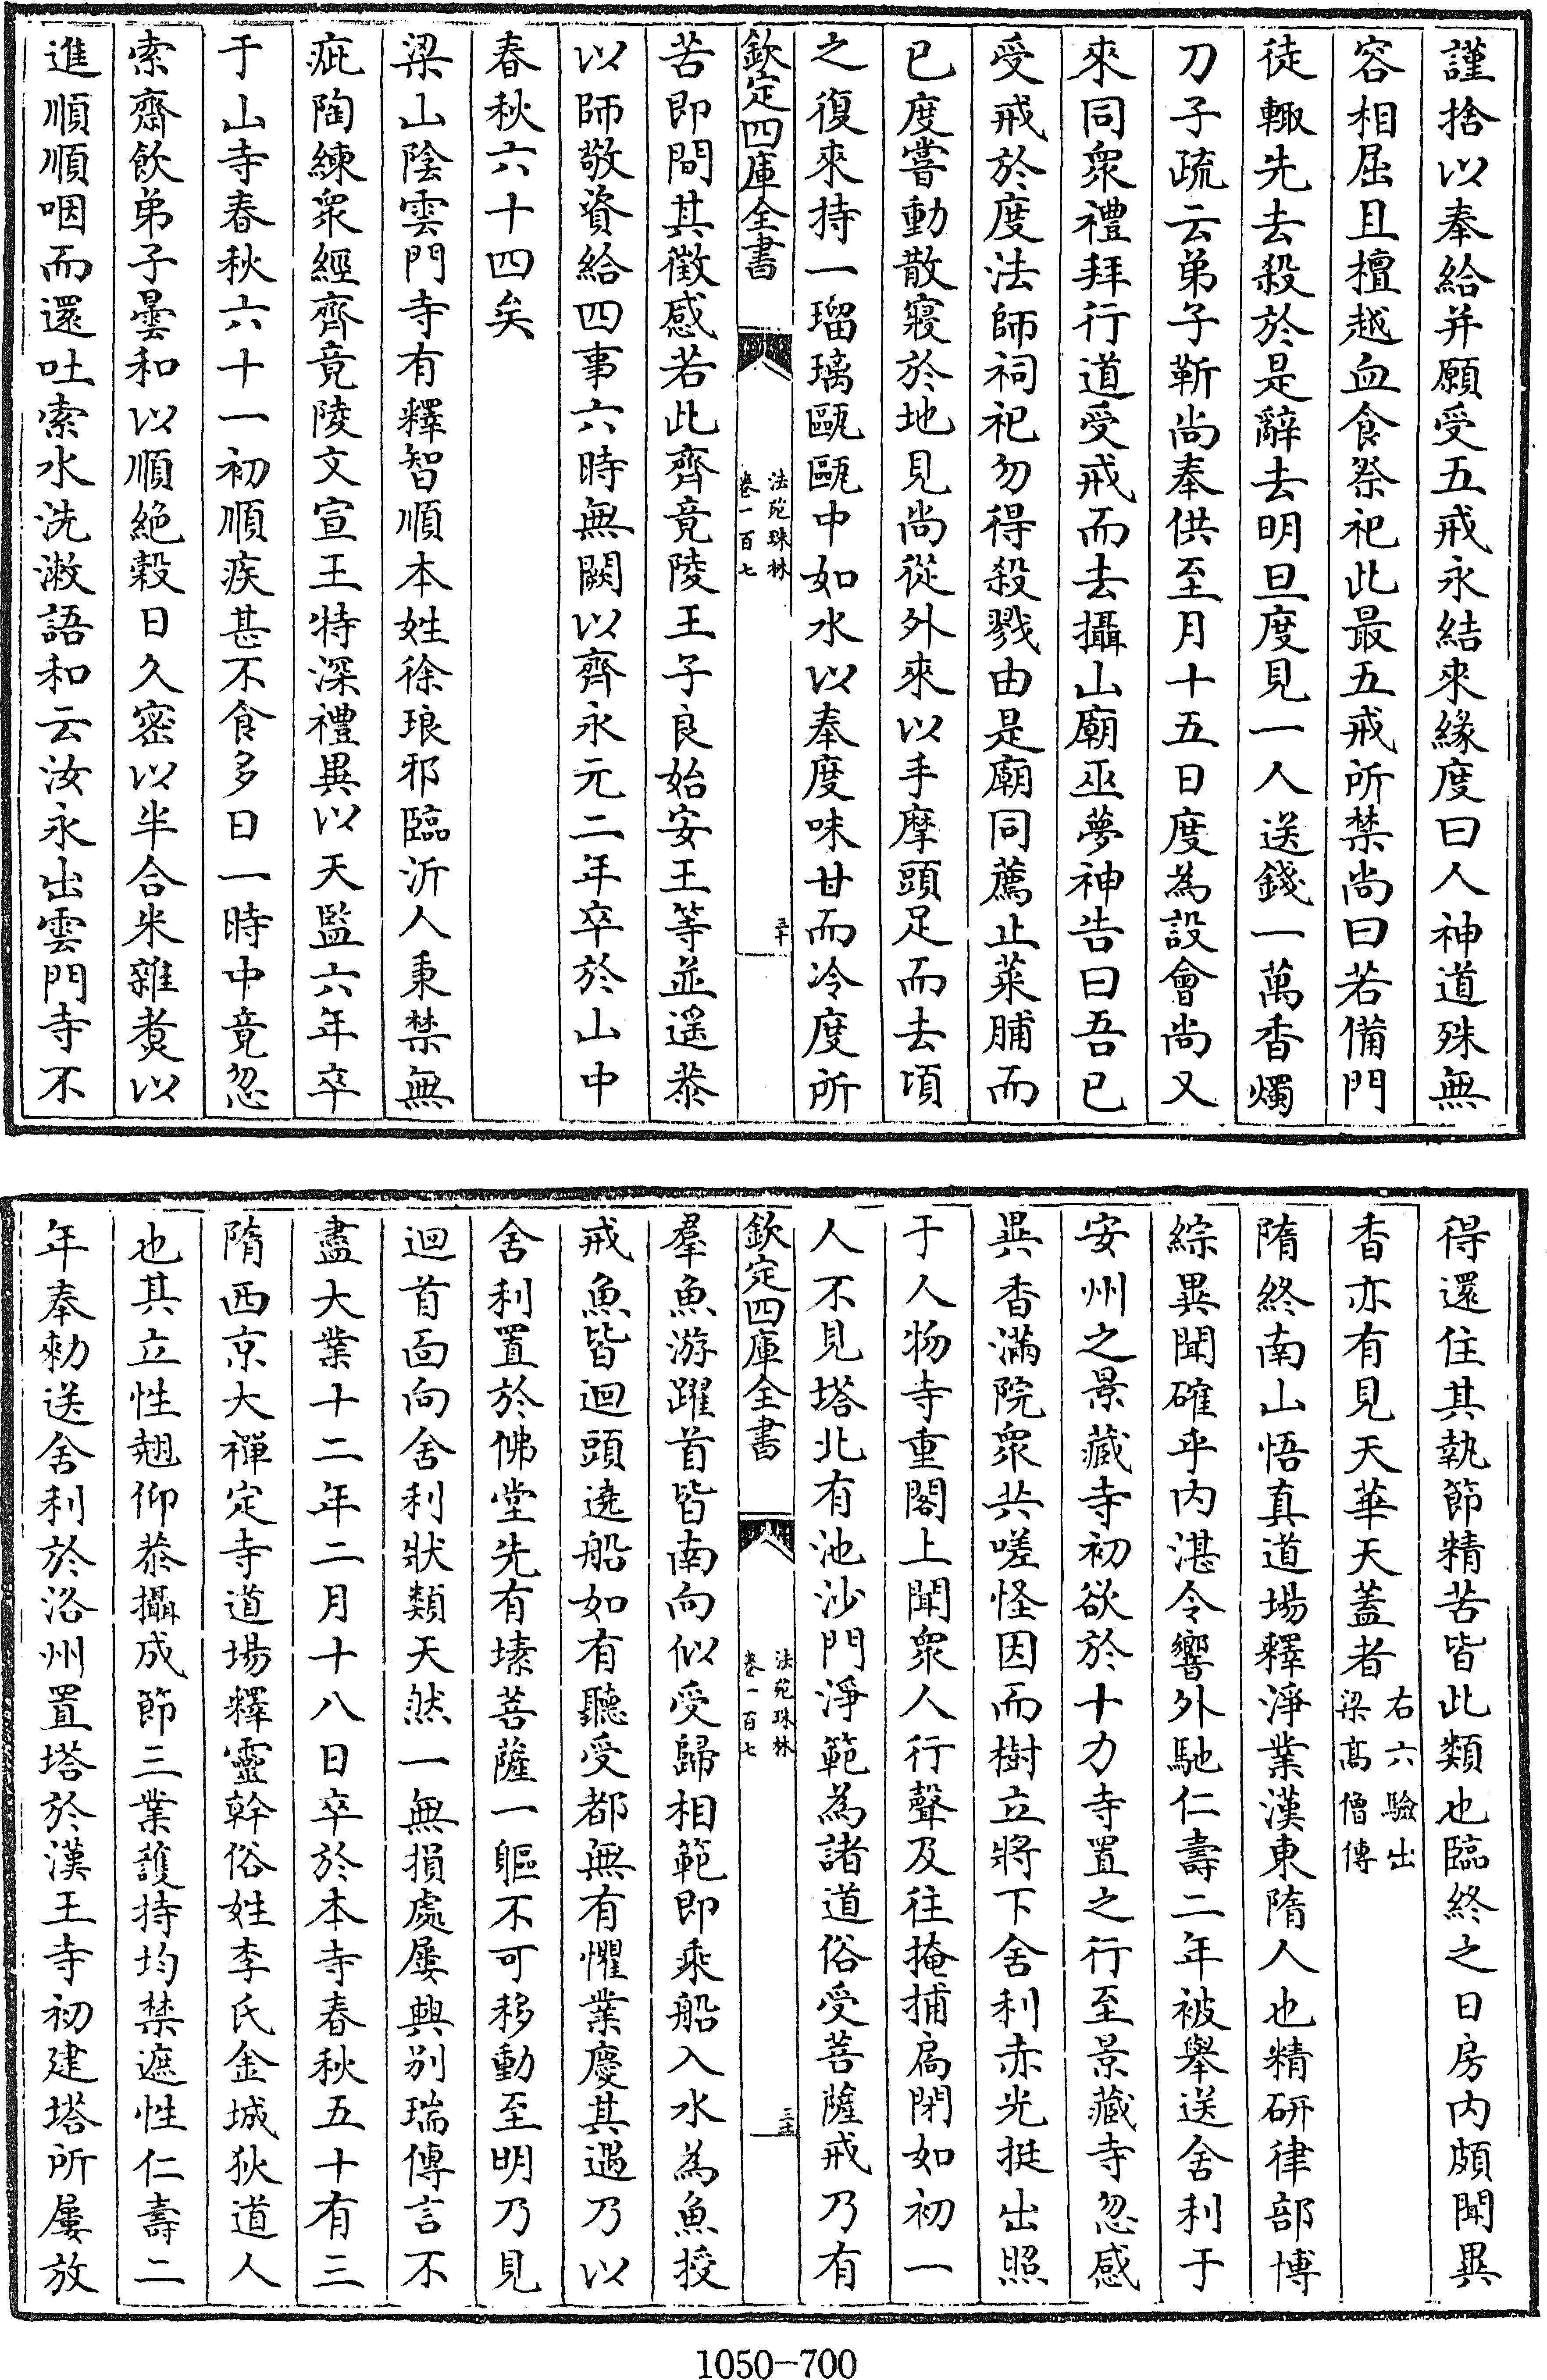 謹捨以奉給并願受五戒永結來緣度曰人神道殊無
容相屈且檀越血食祭祀此最五戒所禁尚曰若備門
徒輙先去殺於是辭去明旦度見一人送錢一萬香燭
刀子疏云弟子靳尚奉供至月十五日度為設會尚又
來同衆禮拜行道受戒而去攝山廟巫夢神告曰吾已
受戒於度法師祠祀勿得殺戮由是廟同薦止菜脯而
已度嘗動散寢於地見尚從外來以手摩頭足而去頃
之復來持一瑠璃甌甌中如水以奉度味甘而冷度所
欽定四庫全書
法苑珠林
卷一百七
三十
苦即間其徵感若此齊竟陵王子良始安王等並遥恭
以師敬資給四事六時無闕以齊永元二年卒於山中
春秋六十四矣
梁山陰雲門寺有釋智順本姓徐琅邪臨沂人秉禁無
疵陶練衆經齊竟陵文宣王特深禮異以天監六年卒
于山寺春秋六十一初順疾甚不食多日一時中竟忽
索齋飲弟子曇和以順絶穀日久密以半合米雜煑以
進順順咽而還吐索水洗漱語和云汝永出雲門寺不
得還住其執節精苦皆此類也臨終之日房内頗聞異
香亦有見天華天蓋者右六驗出
梁髙僧傳
隋終南山悟真道場釋淨業漢東隋人也精研律部博
綜異聞確乎内湛令響外馳仁壽二年被舉送舍利于
安州之景藏寺初欲於十力寺置之行至景藏寺忽感
異香滿院衆共嗟怪因而樹立將下舍利赤光挺出照
于人物寺重閣上聞衆人行聲及往掩捕扃閉如初一
人不見塔北有池沙門淨範為諸道俗受菩薩戒乃有
欽定四庫全書
法苑珠林
卷一百七
三十一
羣魚游躍首皆南向似受歸相範即乘船入水為魚授
戒魚皆迴頭遶船如有聽受都無有懼業慶其遇乃以
舍利置於佛堂先有塐菩薩一軀不可移動至明乃見
迴首面向舍利狀類天然一無損處屢興别瑞傳言不
盡大業十二年二月十八日卒於本寺春秋五十有三
隋西京大禪定寺道場釋靈幹俗姓李氏金城狄道人
也其立性翹仰恭攝成節三業護持均禁遮性仁壽二
年奉勅送舍利於洛州置塔於漢王寺初建塔所屢放
1050-700